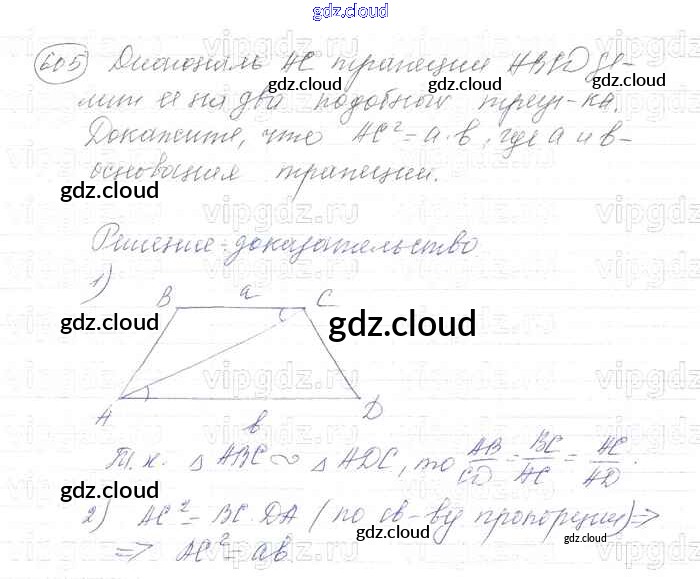 gdz.cloud
605 Диагональ AC трапеции ABCD де-
лит ее на два подобных треуг-ка.
Докажите, что AC² = a·b, где a и b-
gdz.cloud gdz.cloud
основания трапеции.
gdz.cloud gdz.cloud
Решение-доказательство
1)
B a C
gdz.cloud gdz.cloud
A D
b
Т.к. △ ABC ∾ △ ADC, то AB/CD = BC/AC = AC/AD.
gdz.cloud gdz.cloud
2) AC² = BC·DA (по св-ву пропорции) =>
=> AC² = ab
gdz.cloud gdz.cloud